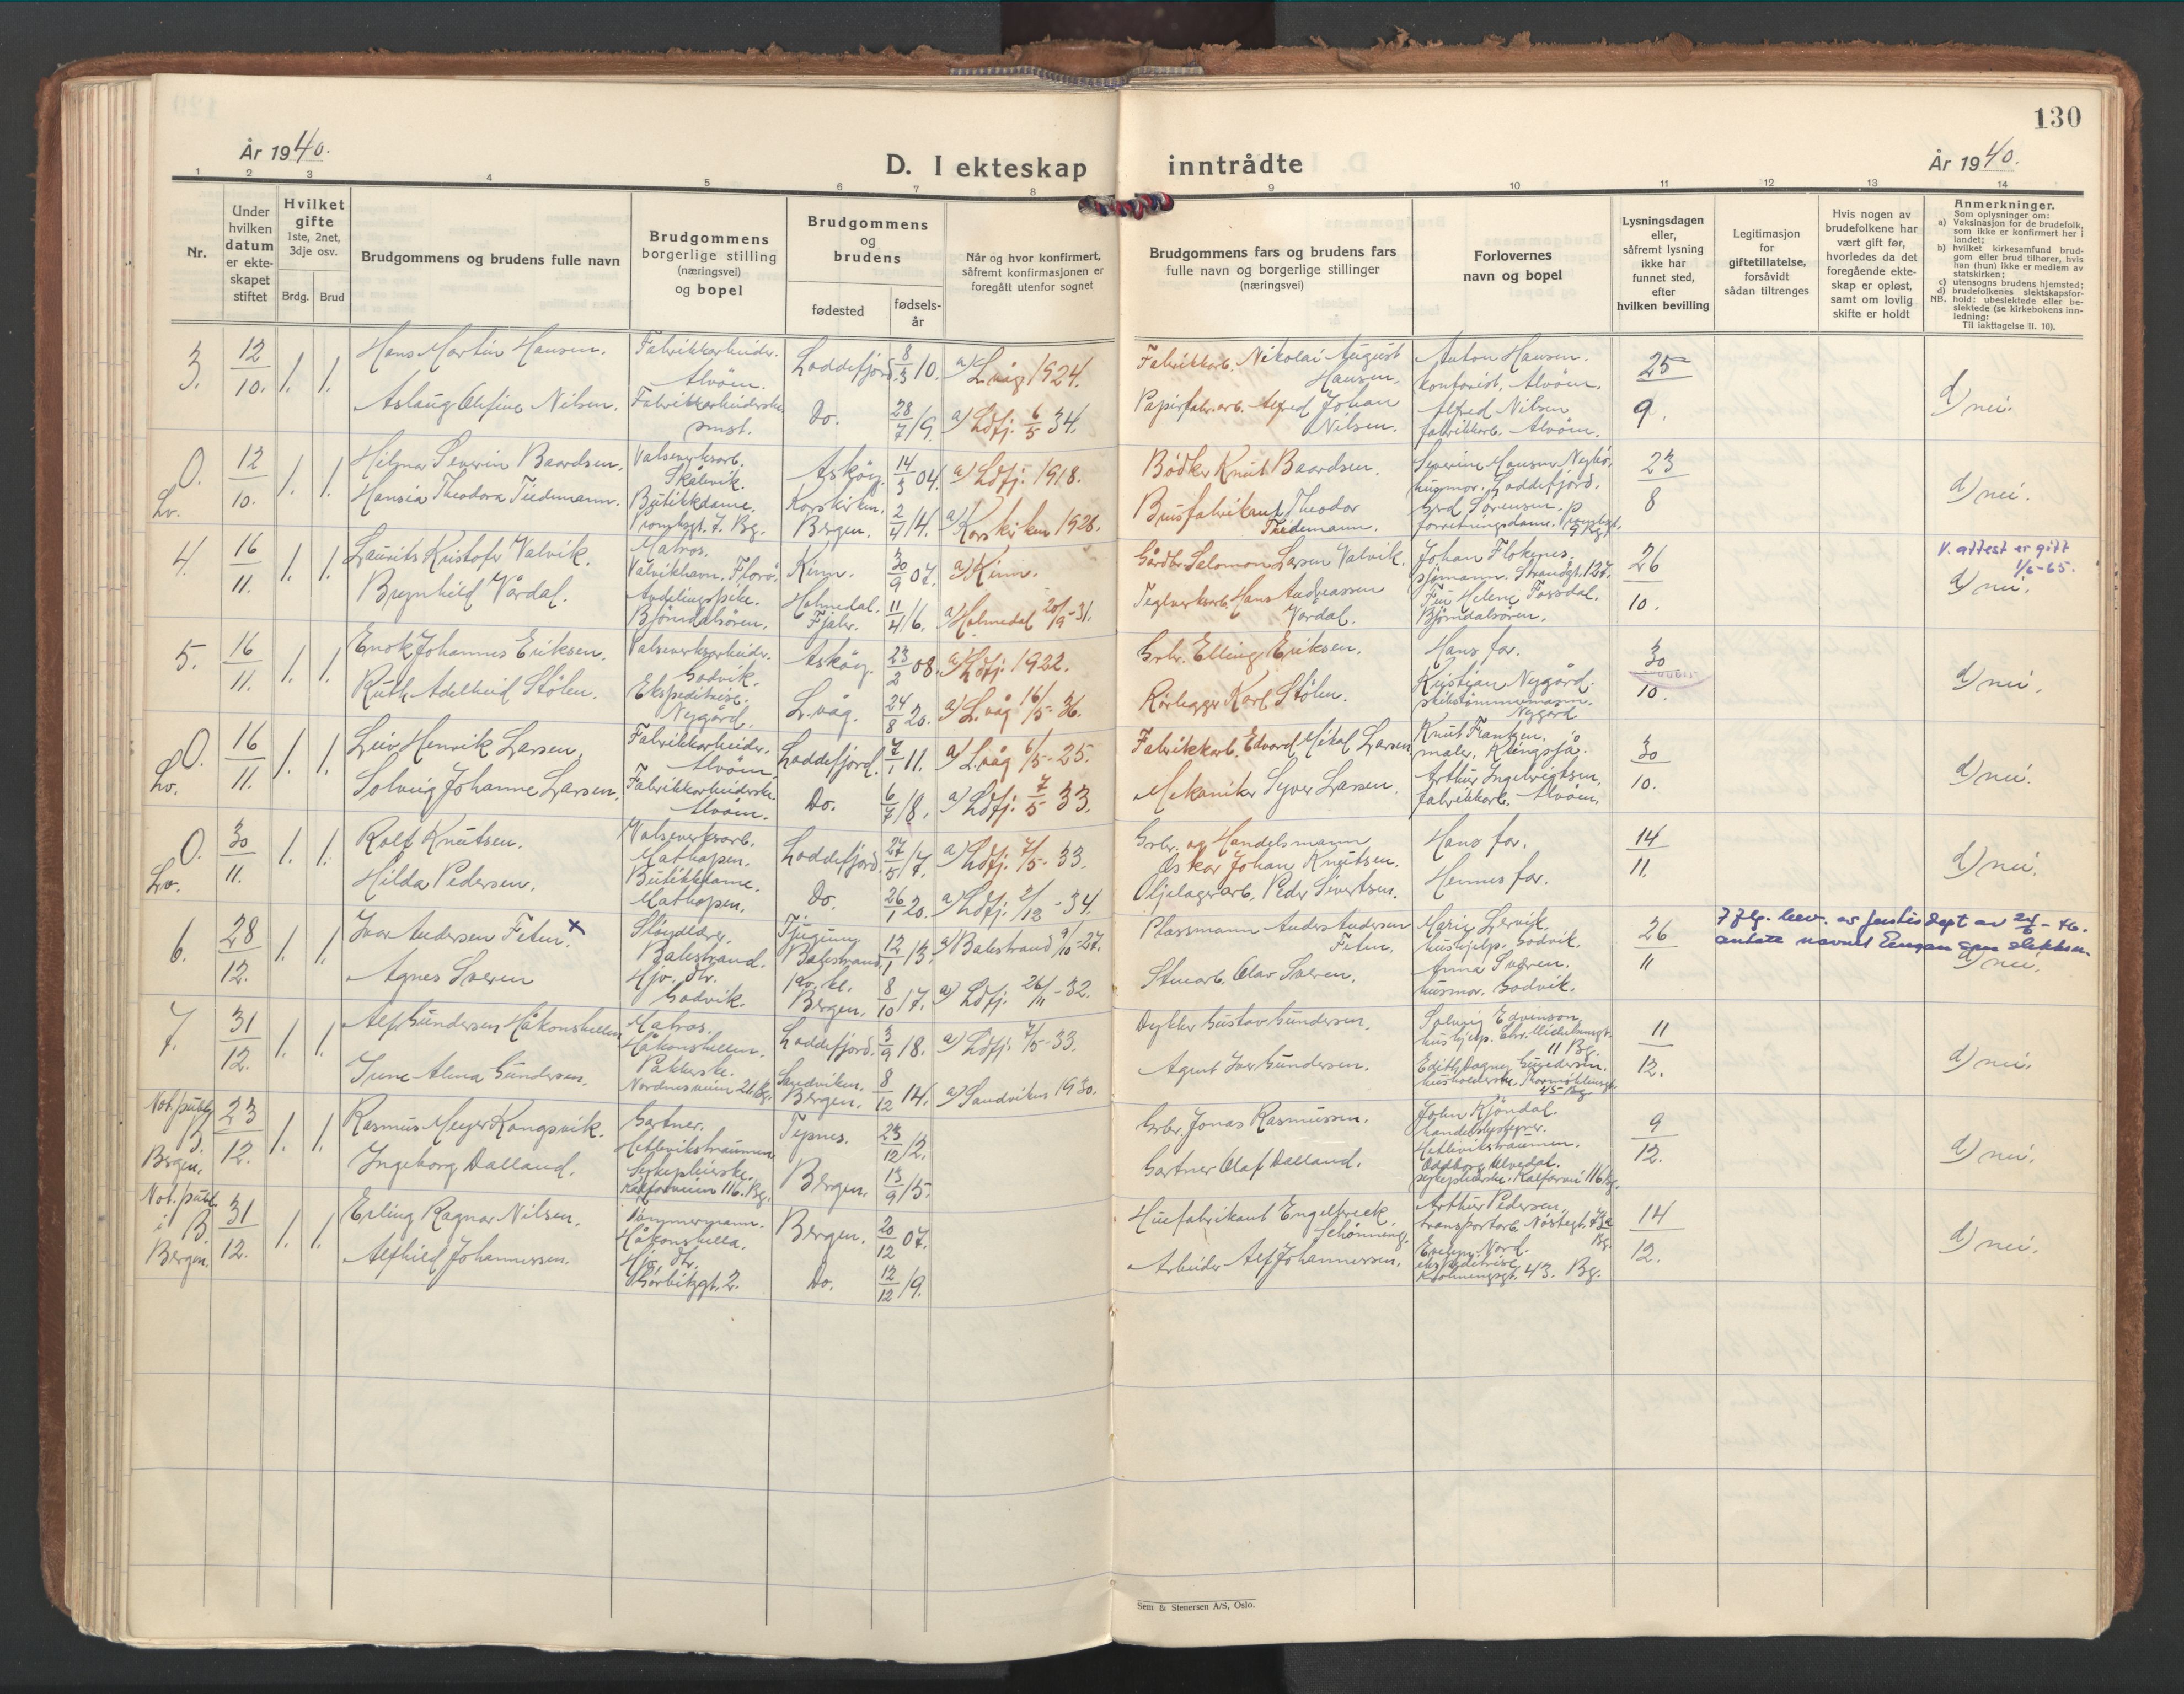 130
År 1940.
D. I ekteskap inntrådte
År 1940.
1 2 3 4 5 6 7 8 9 10 11 12 13 14
Nr.
Under hvilken datum er ekteskapet stiftet
Hvilket gifte 1ste, 2net, 3dje osv.
Brdg. Brud
Brudgommens og brudens fulle navn
Brudgommens borgerlige stilling (næringsvei) og bopel
Brudgommens og brudens
fødested
fødselsår
Når og hvor konfirmert, såfremt konfirmasjonen er foregått utenfor sognet
Brudgommens fars og brudens fars fulle navn og borgerlige stillinger (næringsvei)
Forlovernes navn og bopel
Lysningsdagen eller, såfremt lysning ikke har funnet sted, efter hvilken bevilling
Legitimasjon for giftetillatelse, forsåvidt sådan tiltrenges
Hvis nogen av brudefolkene har vært gift før, hvorledes da det foregående ekteskap er opløst, samt om lovlig skifte er holdt
Anmerkninger.
Som oplysninger om:
a) Vaksinasjon for de brudefolk, som ikke er konfirmert her i landet;
b) hvilket kirkesamfund brudgom eller brud tilhører, hvis han (hun) ikke er medlem av statskirken;
c) utensogns brudens hjemsted;
d) brudefolkenes slektskapsforhold: ubeslektede eller beslektede (se kirkebokens innledning:
NB.
Til iakttagelse II. 10).
3. 12/10. 1. 1. Hans Martin Hansen. Fabrikkarbeider. Alvøen. Loddefjord 8/3 10. a) L.våg 1924. Fabrikkarb. Nikolai August Hansen. Anton Hansen. kontorist, Alvøen. 25/9. d) nei.
Aslaug Olefine Nilsen. Fabrikkarbeiderske smst. Do. 28/7 19. a) Ldfj. 6/5 34. Papirfabr.arb. Alfred Johan Nilsen. Alfred Nilsen fabrikkarb. Alvøen.
O. Lv. 12/10. 1. 1. Hilmar Severin Baardsen. Valseverksarb. Skålevik. Askøy. 14/3 04. a) Ldfj. 1918. Bødker Knut Baardsen. Severine Hansen Nygård, husmor. Loddefjord. 23/8 d) nei.
Hansia Theodora Tiedemann. Butikkdame. Korskirken Bergen. 2/4 14. a) Korskirken 1928. Brusfabrikant Theodor Tiedemann.
4. 16/11. 1. 1. Laurits Kristofer Valvik. Matros. Valvikhavn, Florø. Kinn. 30/9 07. a) Kinn. Gårdbr. Salomon Larsen Valvik. Johan Flokenes, sjømann. Strandgt. 127. 26/10. V. attest er gift 1/6-65. d) nei.
Brynhild Vårdal. Avdelingspike. Bjørndalsøren. Holmedal. Fjaler. 11/4 16. a) Holmedal 20/9-31. Teglverksarb. Hans Andreassen Vårdal. Frk. Helene Forsdal. Bjørndalsøren.
5. 16/11. 1. 1. Enok Johannes Eriksen. Valseverksarbeider. Godvik. Askøy. 23/2 08. a) Ldfj. 1922. Grbr. Elling Eriksen. Hans far. 30/10. d) nei.
Ruth Adelheid Stølen. Ekspeditrise. Nygård. L.våg. 24/8 20. a) L.våg 16/5-36. Rørlegger Karl Stølen. Kristian Nygård. skibstømmermann. Nygård
O. Lv. 16/11. 1. 1. Leiv Henrik Larsen. Fabrikkarbeider. Alvøen. Loddefjord. 7/1 11. a) L.våg 6/5-25. Fabrikkarb. Edvard Mikal Larsen Knut Frantzen, maler, Klingsjå. 30/10. d) nei.
Solveig Johanne Larsen. Fabrikkarbeiderske. Alvøen. Do. 6/7 18. a) Ldfj. 7/5 33. Mekaniker Syver Larsen. Arthur Ingebrigtsen. fabrikkarb. Alvøen.
O. Lv. 30/11. 1. 1. Rolf Knutsen. Valseverksarb. Mathopen. Loddefjord. 27/5 17. a) Ldfj. 7/5-33. Grbr. og Handelsmann Oskar Johan Knutsen. Hans far. 14/11. d) nei.
Hilda Pedersen. Butikkdame. Mathopen. Do. 26/1 20. a) Ldfj. 2/12-34. Oljelagerarb. Peder Sivertsen. Hennes far.
6. 28/12. 1. 1. Ivar Andersen Feten. x Sløydlærer. Balestrand. Tjugum Balestrand 12/1 13. a) Balestrand 9/10 27. Plassmann Anders Andersen Feten. Marie Lervik, hushjelp. Godvik. 26/11 d) nei.
Iflg. bev. av Justisdept av 24/6-46. antatt navnet Eengen som slektsn.
Agnes Sværen Hjv. dtr. Godvik. Bergen. 8/10 17. a) Ldfj. 26/11-32. Stuearb. Olav Sværen. Anna Sværen. husmor. Godvik.
7. 31/12. 1. 1. Alf Gundersen Håkonshellen Matros. Håkonshellen. Loddefjord. 3/9 18. a) Ldfj. 7/5-33. Dykker Gustav Gundersen. Solveig Edvenson, hushjelp. 11 Bg. 11/12. d) nei.
Irene Alma Gundersen. Pakkerske. Nordnesveien 21 Bg. Sandviken. Bergen. 8/12 14. a) Sandviken 1930. Agent Ivar Gundersen. Edith Dagny Gundersen. husholderske. Thormøhlensgt. 45 Bg.
Not. publ. B. Bergen. 23/12. 1. 1. Rasmus Meyer Kongsvik. Gartner. Hetlevikstraumen Tysnes. 23/12 12. Grbr. Jonas Rasmussen. John Kjøndal. handelsbestyrer. Hetlevikstraumen. 9/12. d) nei.
Ingeborg Dalland. Sykepleierske. Kalfarveien 116. Bg. Bergen. 13/9 15. Gartner Olaf Dalland. Oddborg Alvedal. sykepleierske. Kalfarvei 116 Bg.
Not. publ. i B. Bergen. 31/12. 1. 1. Erling Ragnar Nilsen. Tømmermann. Håkonshella. Bergen. 20/12 07. Huefabrikant Engelbreck Schønning. Arthur Pedersen, transportarb. Nøstegt. 73a Bg. 14/12. d) nei.
Alfhild Johannessen. Hjv. dtr. Do. 12/12 19. Arbeider Alf Johannessen. Nord. ekspeditrise 43. Bg.
Sem & Stenersen A/S, Oslo.